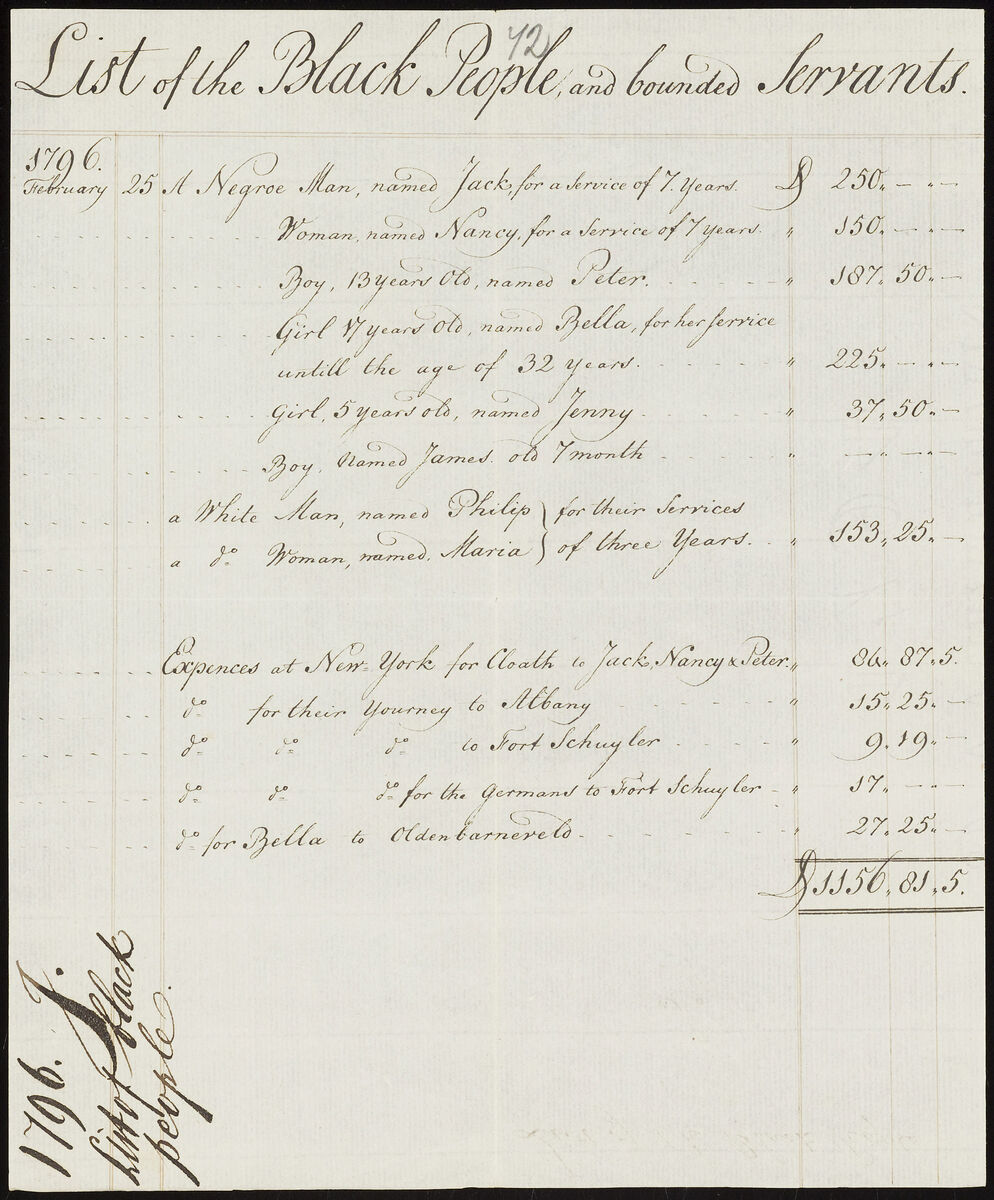 42
List of the Black People, and bounded Servants.
1796.
February 25 A Negroe Man, named Jack, for a Service of 7. Years. $ 250 „ — „ —
Woman, named Nancy, for a Service of 7 years. „ 150 „ — „ —
Boy, 13 years Old, named Peter. „ 187 „ 50 „ —
Girl 17 years old, named Bella, for her Service
untill the age of 32 years. „ 225 „ — „ —
Girl, 5 years old, named Jenny „ 37 „ 50 „ —
Boy, Named James. old 7 month „ — „ — „ —
a White Man, named Philip } for their Services
a do Woman, named, Maria } of three Years. „ 153 „ 25 „ —
Expences at New-York for Cloath to Jack, Nancy & Peter. „ 84 „ 87 „ 5.
do for their Yourney to Albany „ 15 „ 25 „ —
do do do to Fort Schuyler „ 9 „ 19 „ —
do do do for the Germans to Fort Schuyler „ 17 „ — —
do for Bella to Oldenbarneveld „ 27 „ 25 „ —
$ 1156 „ 81 „ 5.
1796. J.
List of black
people.